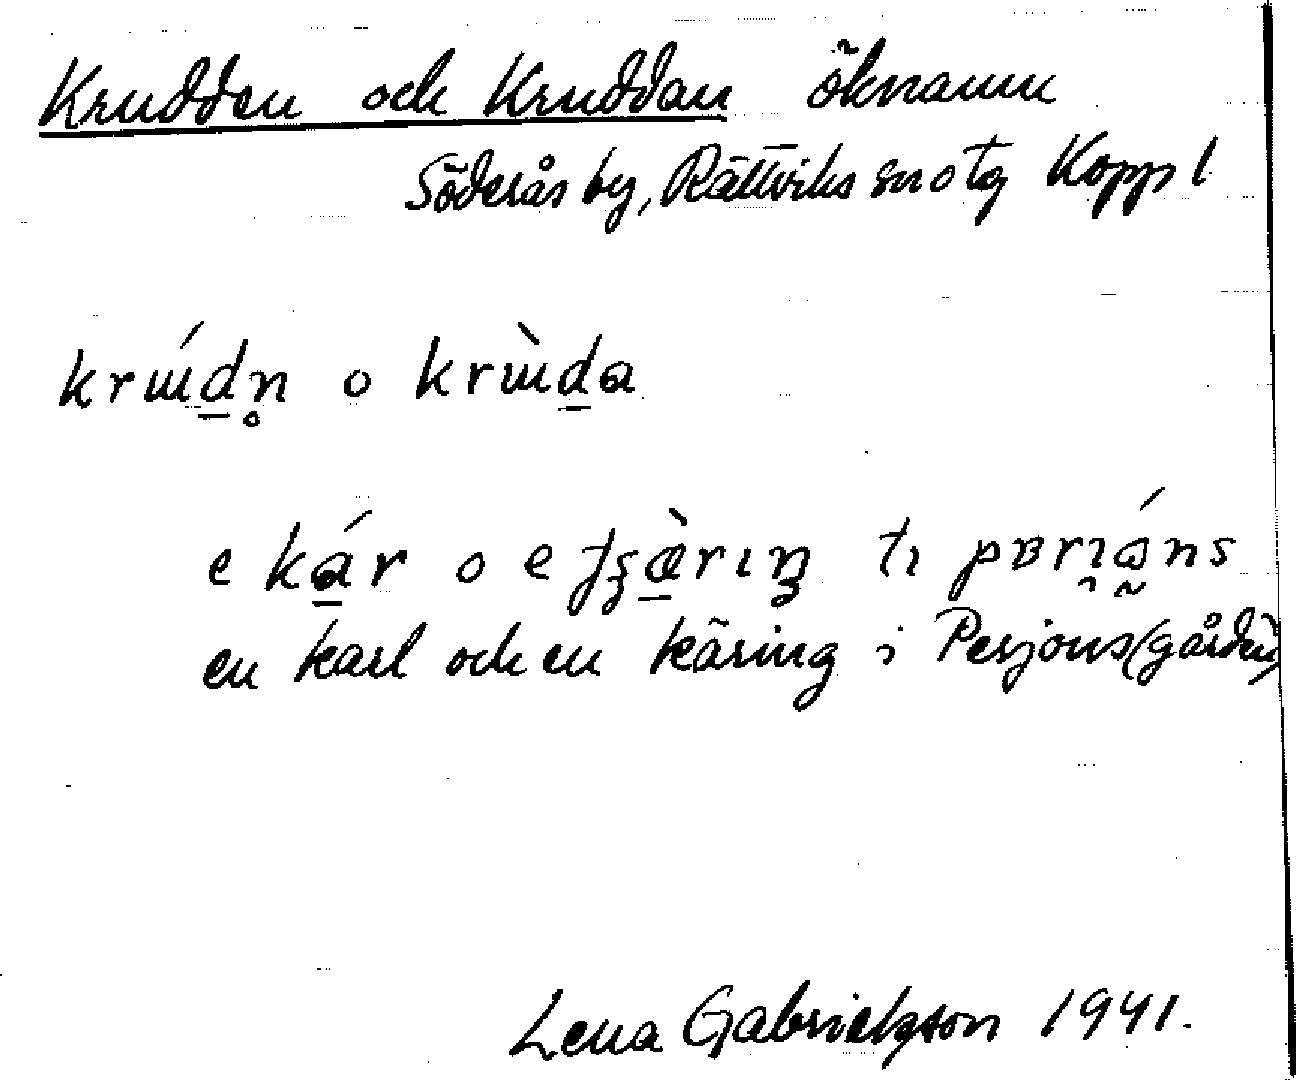 Krudden och Kruddan öknamn
Söderås by, Rättviks sn o tg Kopp l
krɯ́d̲n̥ o krɯ̀d̲a
e ká̲r o e ʈʂæ̲̀rıŋ tı pɐrı̯ɑ́ns
en karl och en käring i Persjons(gården)
Lena Gabrielsson 1941.